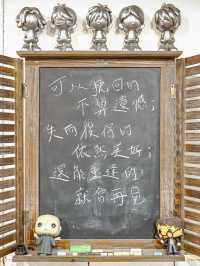 可以挽回的
不算遺憾；
失而復得的
依然美好；
還能重逢的
就會再見